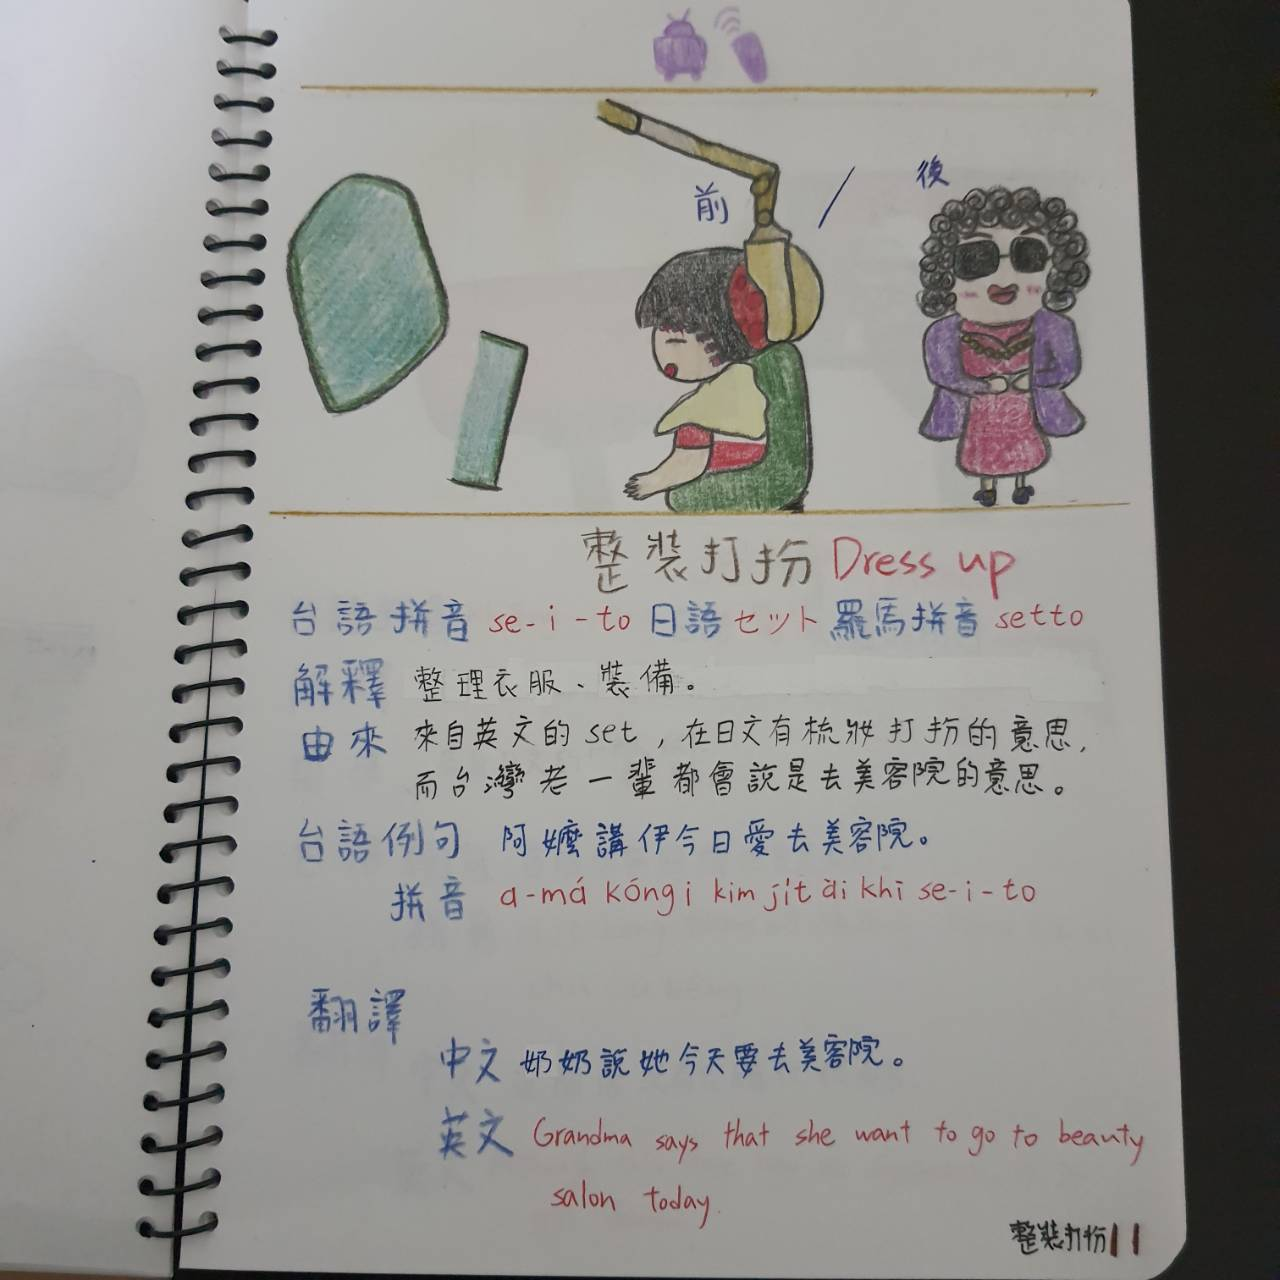 前 / 後
整裝打扮 Dress up
台語拼音 se-i-to 日語セット羅馬拼音 setto
解釋 整理衣服、裝備。
由來 來自英文的set，在日文有梳妝打扮的意思，
而台灣老一輩都會說是去美容院的意思。
台語例句 阿嬤講伊今日愛去美容院。
拼音 a-má kóng i kim ji̍t ài khì se-i-to
翻譯
中文 奶奶說她今天要去美容院。
英文 Grandma says that she want to go to beauty
salon today.
整裝打扮11